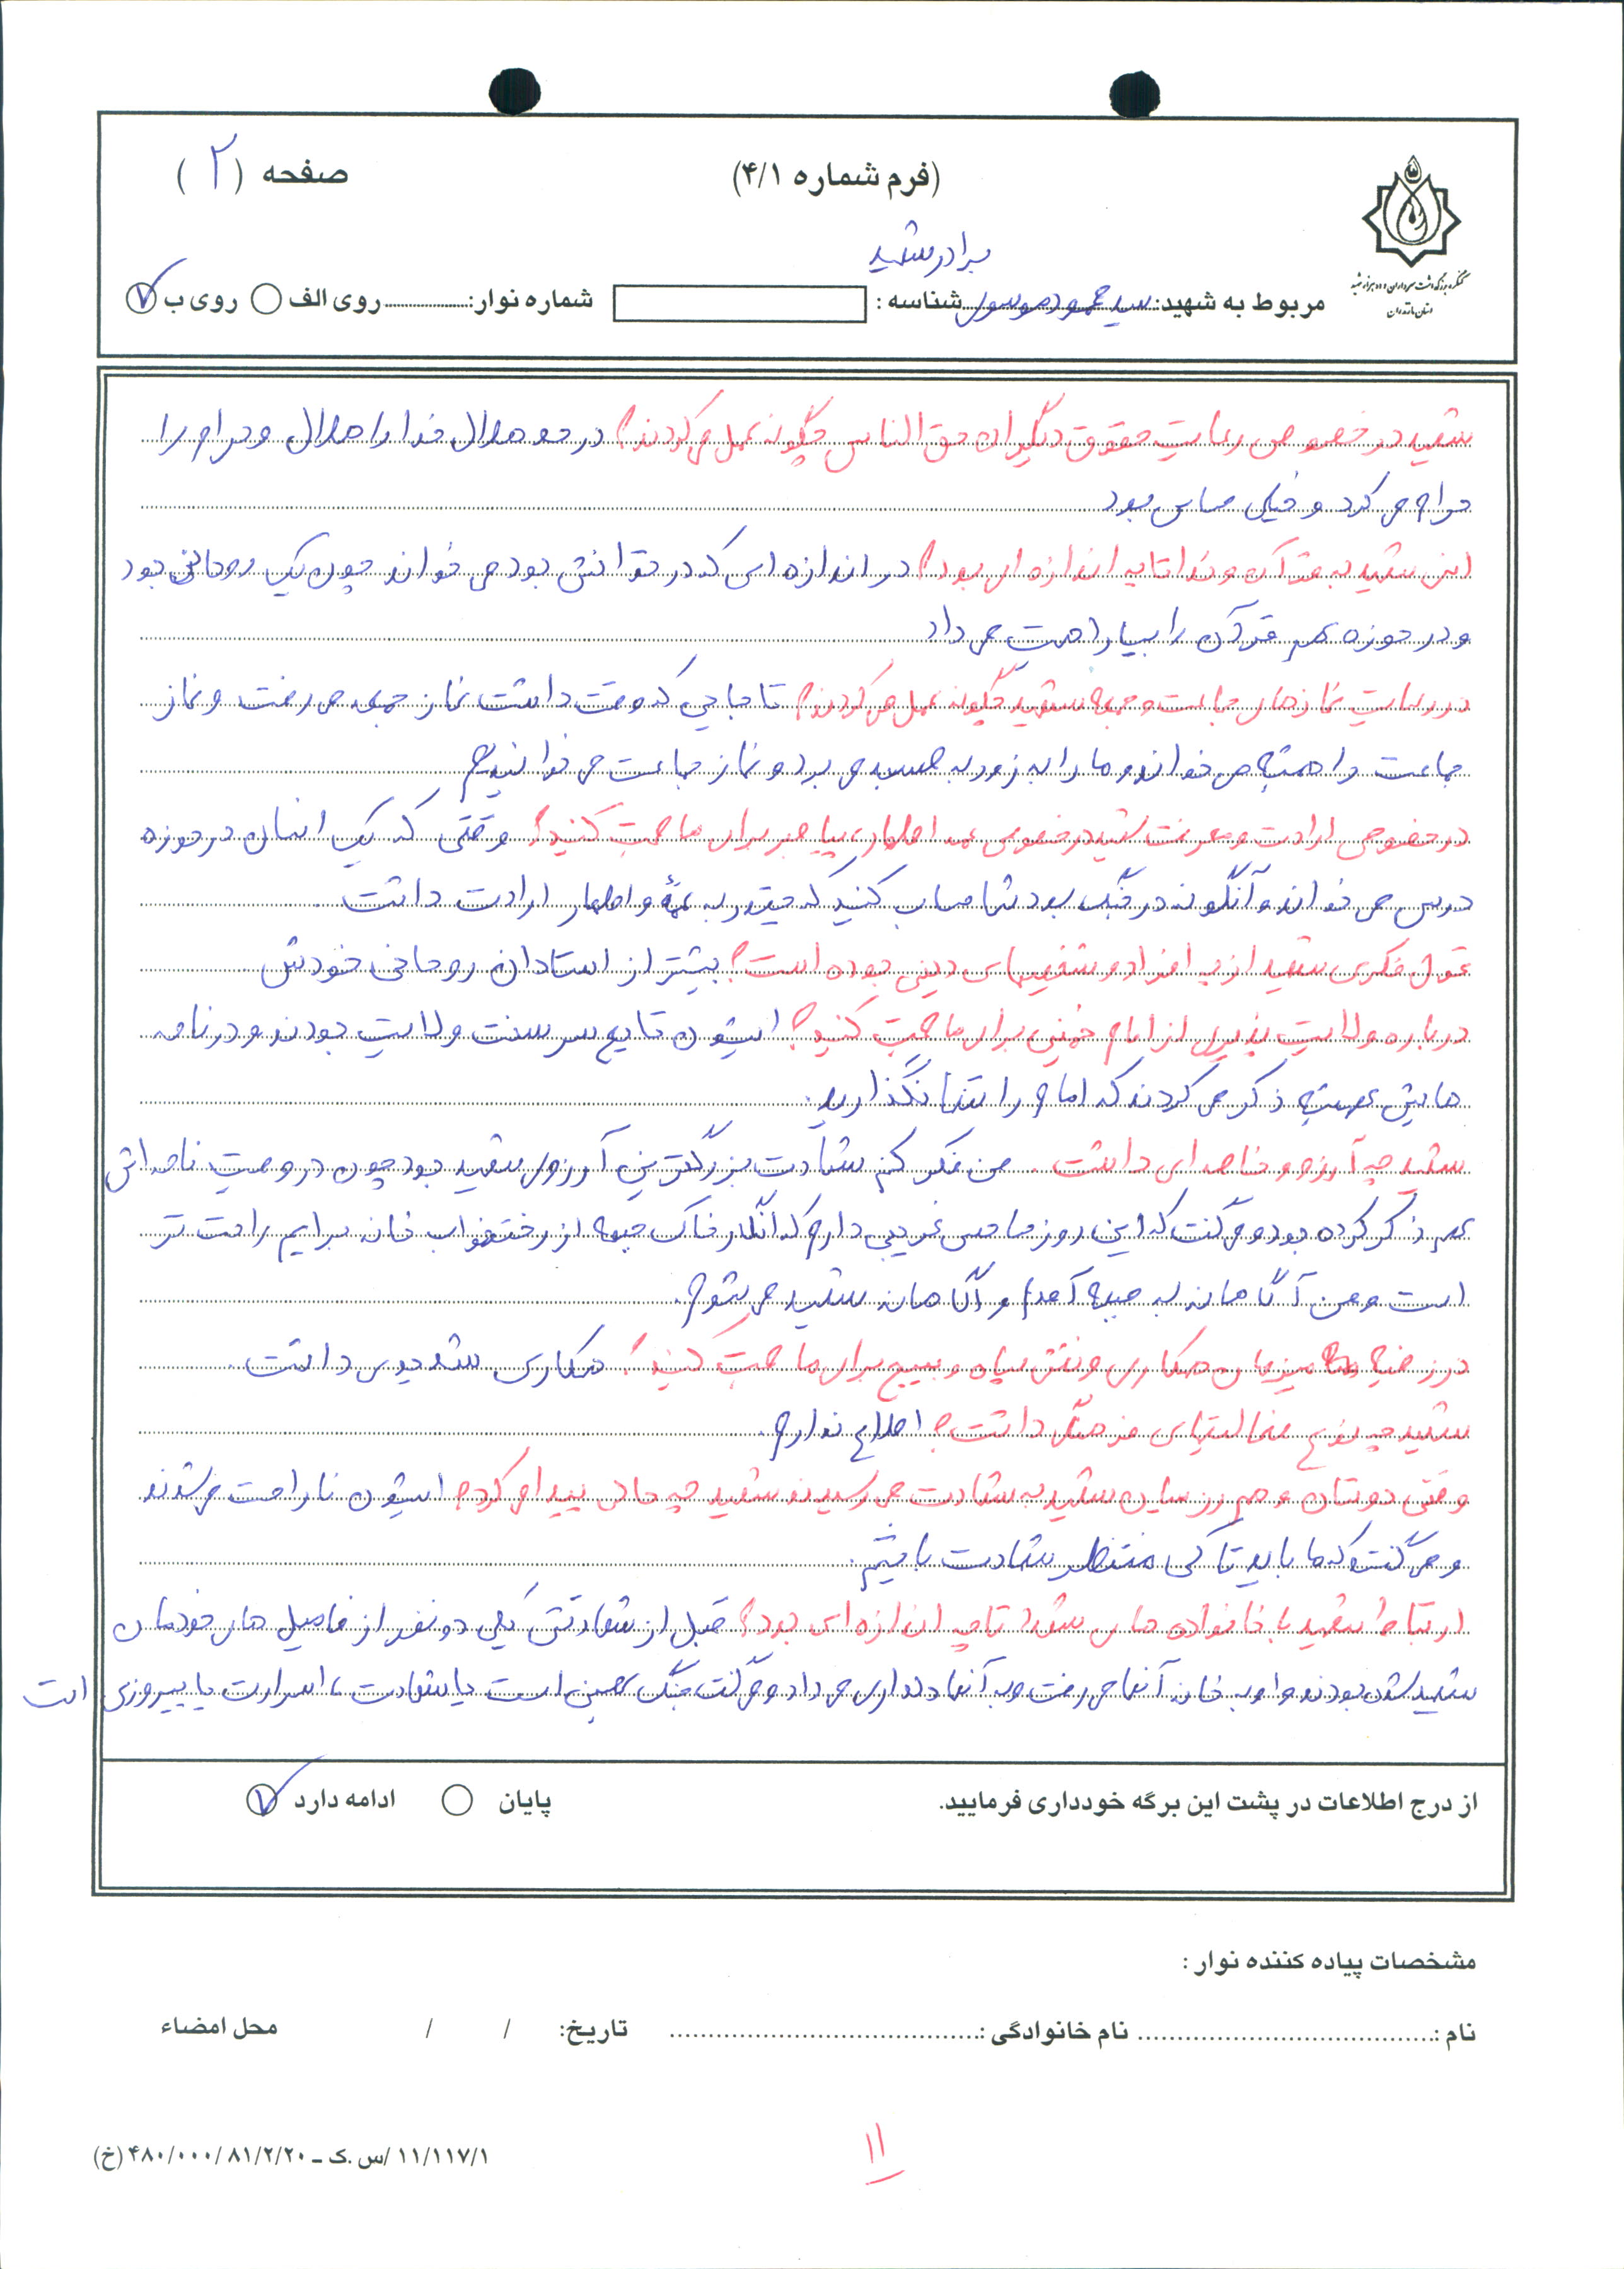 (فرم شماره ۴/۱)
صفحه (۲)
برادر شهید
کنگره بزرگداشت سرداران و ده هزار شهید
استان مازندران
مربوط به شهید: سید محمود موسوی شناسه : شماره نوار: روی الف روی ب
شهید در خصوص رعایت حقوق دیگران و حق الناس چگونه عمل می کردند؟ در حد حلال خدا را حلال و حرام را
حرام می کرد و خیلی حساس بود
انس شهید به قرآن و خدا تا چه اندازه ای بود؟ در اندازه ای که در توانش بود می خواند چون یک روحانی بود
و در حوزه هم قرآن را بسیار اهمیت می داد
در رعایت نمازهای جماعت و جمعه شهید چگونه عمل می کردند؟ تا جایی که وقت داشت نماز جمعه می رفت و نماز
جماعت را همیشه می خواند و ما را به زور به مسجد می برد و نماز جماعت می خواندیم
در خصوص ارادت و معرفت شهید در خصوص ائمه اطهار و پیامبر برای ما صحبت کنید؟ وقتی که یک انسان در حوزه
درس می خواند و آنگونه در جنگ بود شما حساب کنید که چقدر به ائمه و اطهار ارادت داشت .
تحول فکری شهید از چه افراد و شخصیتهای دینی بوده است؟ بیشتر از استادان روحانی خودش
درباره ولایت پذیری از امام خمینی برای ما صحبت کنید؟ ایشون تابع سرسخت ولایت بودند و در نامه
هایش همیشه ذکر می کردند که امام را تنها نگذارید .
شهید چه آرزو و خاصه ای داشت . من فکر کنم شهادت بزرگترین آرزوی شهید بود چون در وصیت نامه اش
هم ذکر کرده بود و می گفت که این روزها حس غریبی دارم که انگار خاک جبهه از رختخواب خانه برایم راحت تر
است و من آگاهانه به جبهه آمدم و آگاهانه شهید می شوم .
در زمینه میزبان همکاری و نقش سپاه و بسیج برای ما صحبت کنید؟ همکاری شدیدی داشت .
شهید چه نوع فعالیتهای فرهنگی داشت؟ اطلاع ندارم .
وقتی دوستان و هم رزمان شهید به شهادت می رسیدند شهید چه حالی پیدا می کرد؟ ایشون ناراحت می شدند
و می گفت که ما باید تا کی منتظر شهادت باشیم .
ارتباط شهید با خانواده های شهدا تا چه اندازه ای بود؟ قبل از شهادتش یکی دو نفر از فامیل های خودمان
شهید شده بودند و او به خانه آنها می رفت و به آنها دلداری می داد و می گفت جنگ همین است یا شهادت ، اسارت یا پیروزی است
از درج اطلاعات در پشت این برگه خودداری فرمایید. پایان ادامه دارد
مشخصات پیاده کننده نوار :
نام : نام خانوادگی : تاریخ: / / محل امضاء
۱۱
۱۱/۱۱۷/۱ /س .ک ـ ۸۱/۲/۲۰ /۴۸۰/۰۰۰ (خ)